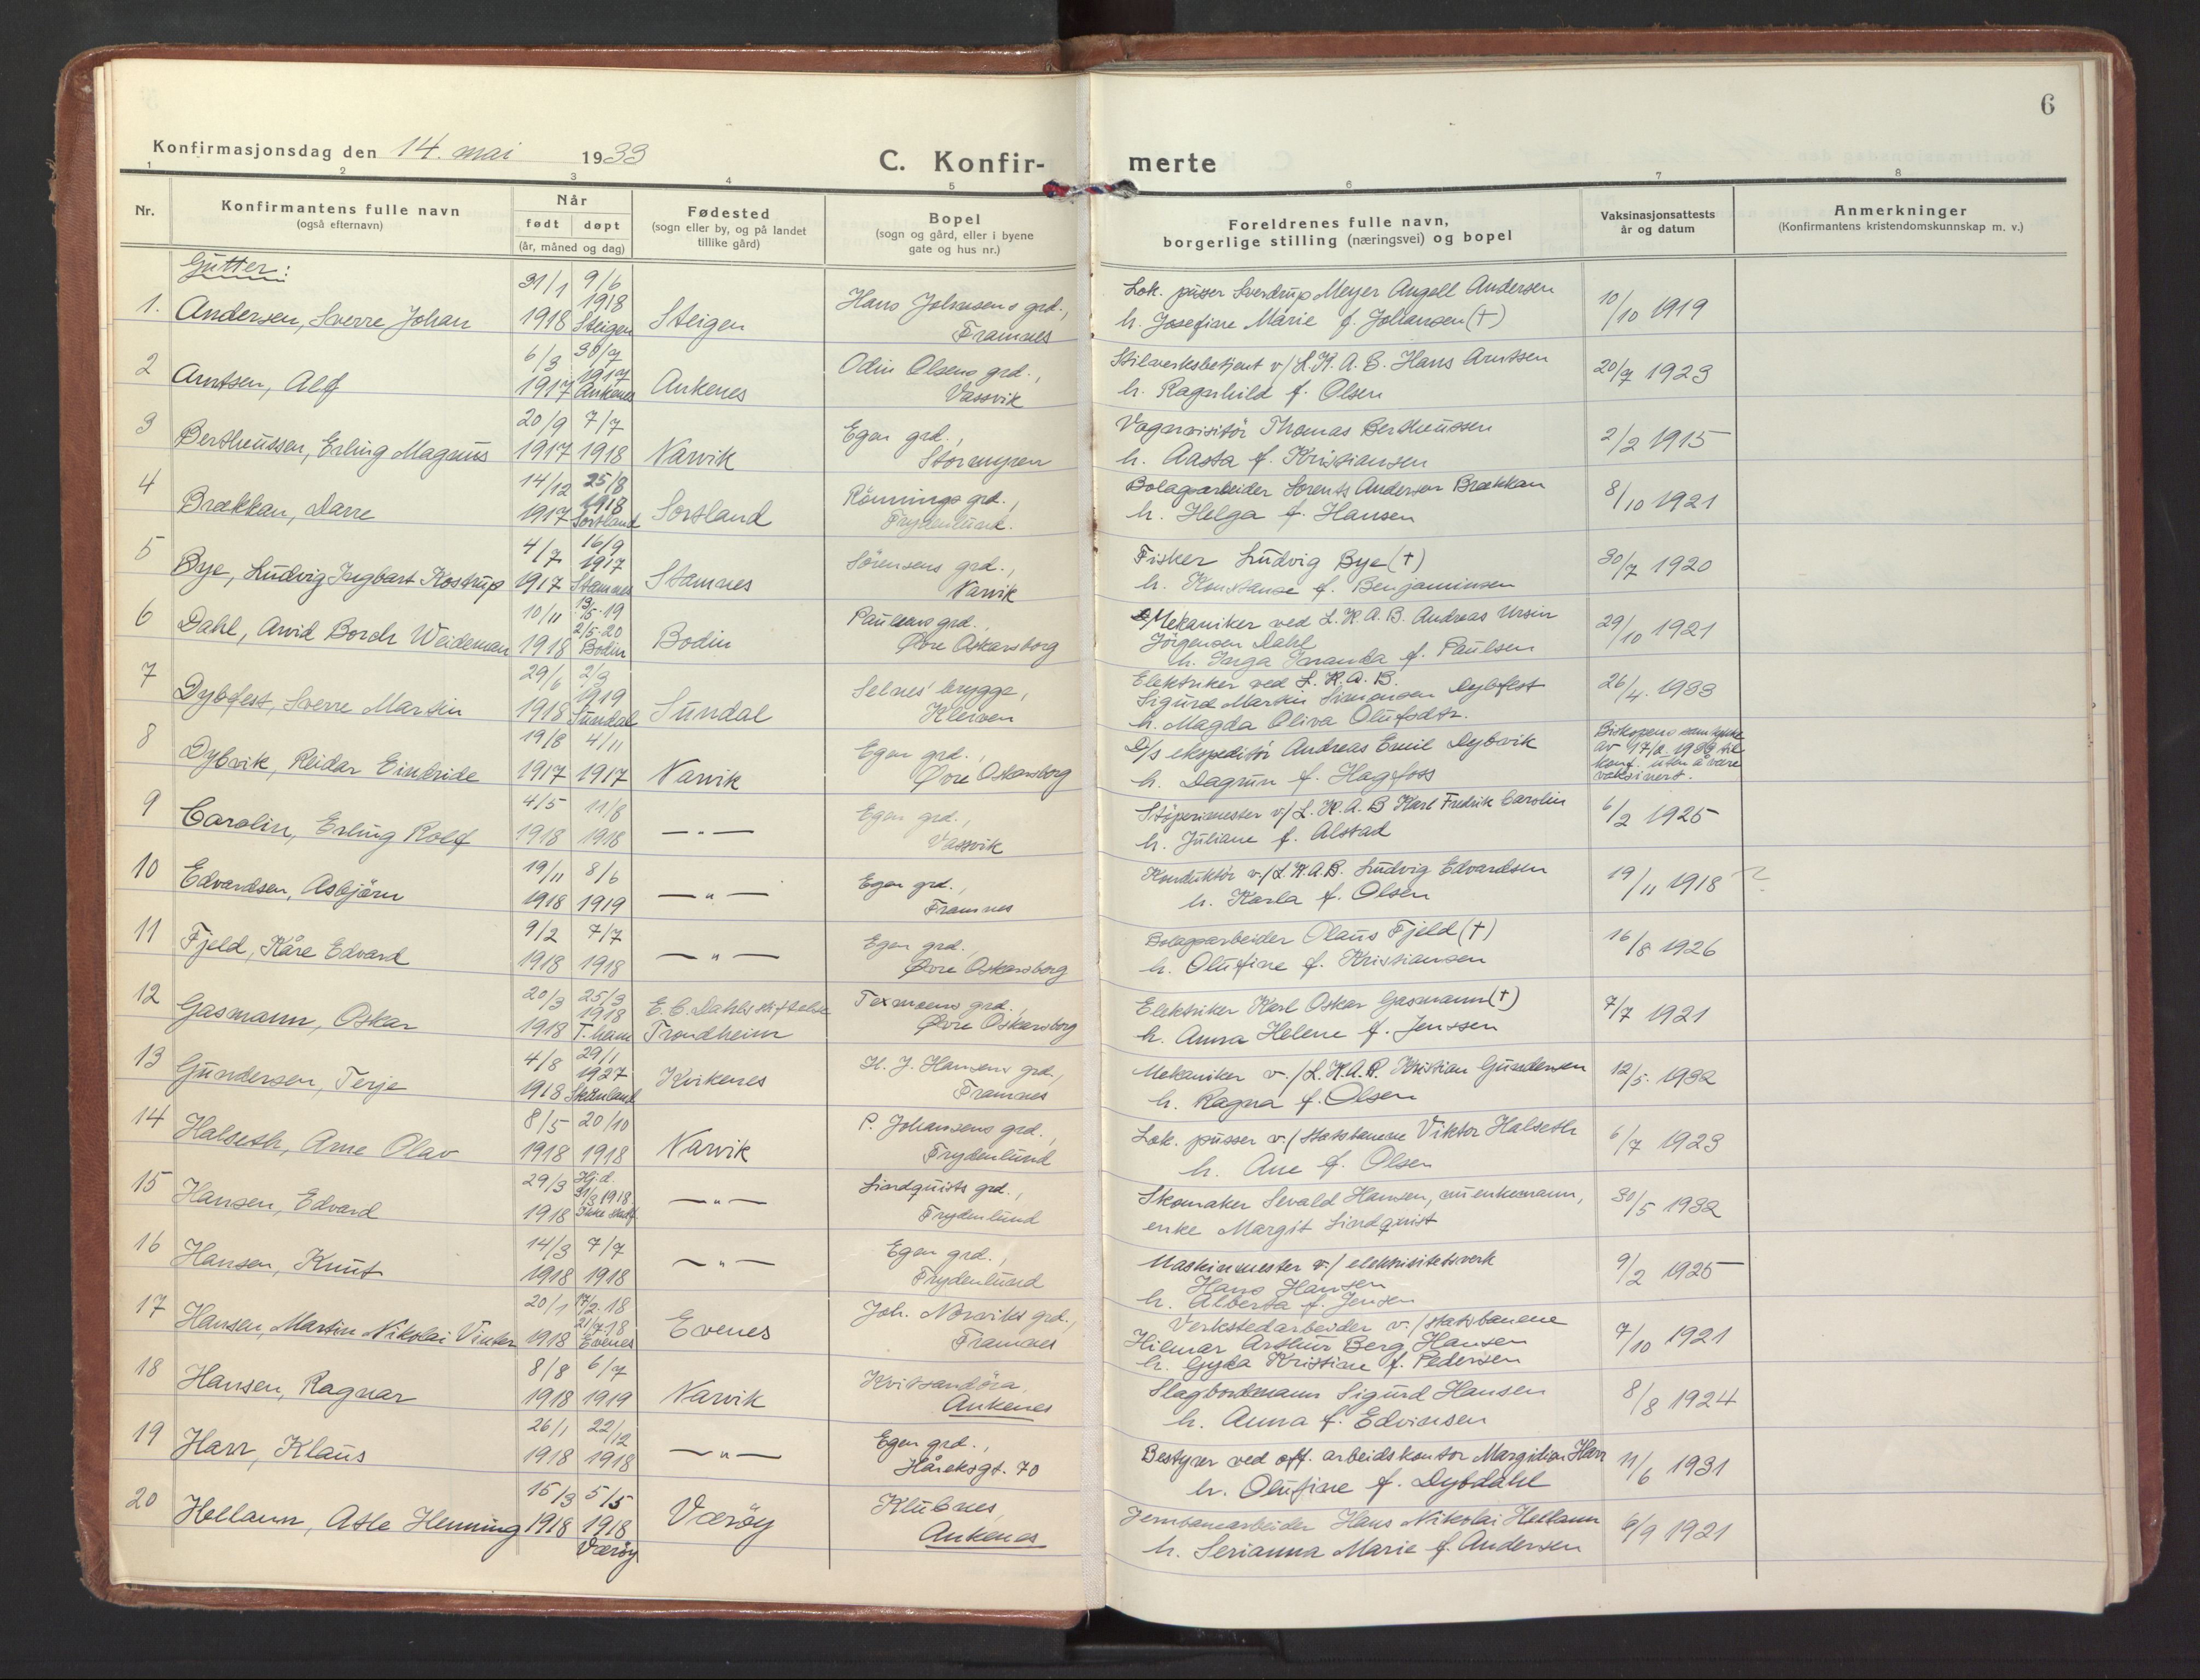 6
Konfirmasjonsdag den 14. mai 1933
C. Konfir-
merte
1 2 3 4 5 6 7 8
Nr.
Konfirmantens fulle navn
(også efternavn)
Når
født døpt
(år, måned og dag)
Fødested
(sogn eller by, og på landet
tillike gård)
Bopel
(sogn og gård, eller i byene
gate og hus nr.)
Foreldrenes fulle navn,
borgerlige stilling (næringsvei) og bopel
Vaksinasjonsattests
år og datum
Anmerkninger
(Konfirmantens kristendomskunnskap m. v.)
Gutter:
1. Andersen, Sverre Johan 31/1 1918 9/6 1918 Steigen Steigen Hans Johnsens grd., Framnes
Lok. pusser Sverdrup Meyer Angell Andersen
h. Josefine Marie f. Johansen (†)
10/10 1919
2 Arntsen, Alf 6/3 1917 30/7 1917 Ankenes Ankenes Odin Olsens grd., Vassvik
Stilverksbetjent v/ L.K.A.B. Hans Arntsen
h. Ragnhild f. Olsen
20/7 1923
3 Bertheussen, Erling Magnus 20/9 1917 7/7 1918 Narvik Egen grd., Storengen
Vognvisitør Thomas Bertheussen
h. Aasta f. Kristiansen
2/2 1915
4 Brækkan, Darre 14/12 1917 25/8 1918 Sortland Sortland Rønnings grd., Frydenlund.
Bolagsarbeider Lorents Andersen Brækkan
h. Helga f. Hansen
8/10 1921
5 Bye, Ludvig Ingbart Kostrup 4/7 1917 16/9 1917 Stamnes Stamnes Sørensens grd., Narvik
Fisker Ludvig Bye (†)
h. Konstanse f. Benjaminsen
30/7 1920
6 Dahl, Arvid Borch Weideman 10/11 1918 13/5.19 2/5.20 Bodin Bodin Paulsens grd., Øvre Oskarsborg
Mekaniker ved L.K.A.B. Andreas Ursin
Jörgensen Dahl
h. Inga Jnanda f. Paulsen
29/10 1921
7 Dybfest, Sverre Martin 29/6 1918 2/3 1919 Sundal Sundal Selnes' brygge, Kleiven
Elektriker ved L.K.A.B.
Sigurd Martin Simonsen Dybfest
h. Magda Oliva Olufsdtr.
26/4. 1933
8 Dybvik, Reidar Eindride 19/8 1917 4/11 1917 Narvik Egen grd., Øvre Oskarsborg
D/s ekspeditör Andreas Emil Dybvik
h. Dagrun f. Hagfoss
Biskopens samtykke
av 17/2. 1933 til
konf. uten å være
vaksinert.
9 Carolin, Erling Rolf 4/5 1918 11/8 1918 — " — Egen grd., Vassvik
Støperimester v/ L.K.A.B Karl Fredrik Carolin
h. Juliane f. Alstad
6/2 1925
10 Edvardsen, Asbjörn 19/11 1918 8/6 1919 — " — Egen grd., Framnes
Konduktör v./ L.K.A.B. Ludvig Edvardsen
h. Karla f. Olsen
19/11 1918 ?
11 Fjeld, Kåre Edvard 9/2 1918 7/7 1918 — " — Egen grd. Øvre Oskarsborg
Bolagsarbeider Olaus Fjeld (†)
h. Olufine f. Kristiansen
16/8 1926
12 Gasmann, Oskar 20/3 1918 25/3 1918 T.heim E. C. Dahls stiftelse Trondheim Texmoens grd., Øvre Oskarsborg
Elektriker Karl Oskar Gasmann (†)
h. Anna Helene f. Jenssen
7/7 1921
13 Gundersen, Terje 4/8 1918 29/1 1927 Skånland Kirkenes H. J. Hansens grd., Framnes
Mekaniker v./ L.K.A.B. Kristian Gundersen
h. Ragna f. Olsen
12/5. 1932
14 Halseth, Arne Olav 8/5 1918 20/10 1918 Narvik P. Johansens grd., Frydenlund
Lok. pusser v./ statsbanene Viktor Halseth
h. Ane f. Olsen
6/7 1923
15 Hansen, Edvard 29/3 1918 Hj.d. 31/3 1918. Ikke stadf. — " — Lindquists grd., Frydenlund
Skomaker Sevald Hansen, nu enkemann,
enke Margit Lindquist
30/5 1932
16 Hansen, Knut 14/3 1918 7/7 1918 — " — Egen grd., Frydenlund
Maskinmester v./ elektrisitetsverk
Hans Hansen
h. Alberta f. Jensen
9/2 1925
17 Hansen, Martin Nikolai Vinter 20/1 1918 17/2.18 21/7.18 Evenes Evenes Joh. Norviks grd., Framnes
Verkstedarbeider v./ statsbanene
Hilmar Arthur Berg Hansen
h. Gyda Kristine f. Pedersen
7/10 1921
18 Hansen, Ragnar 8/8 1918 6/7 1919 Narvik Kvitsandöra, Ankenes
Slagbordmann Sigurd Hansen
h. Anna f. Edvinsen
8/8 1924
19 Harr, Klaus 26/1 1918 22/12 1918 — " — Egen grd., Håreksgt. 70
Bestyrer ved off. arbeidskontor Margidion Harr
h. Olufine f. Dybdahl
11/6 1931
20 Hellann, Atle Henning 15/3 1918 5/5 1918 Værøy Værøy Klubnes, Ankenes
Jernbanearbeider Hans Nikolai Hellann
h. Serianna Marie f. Andersen
6/9 1921